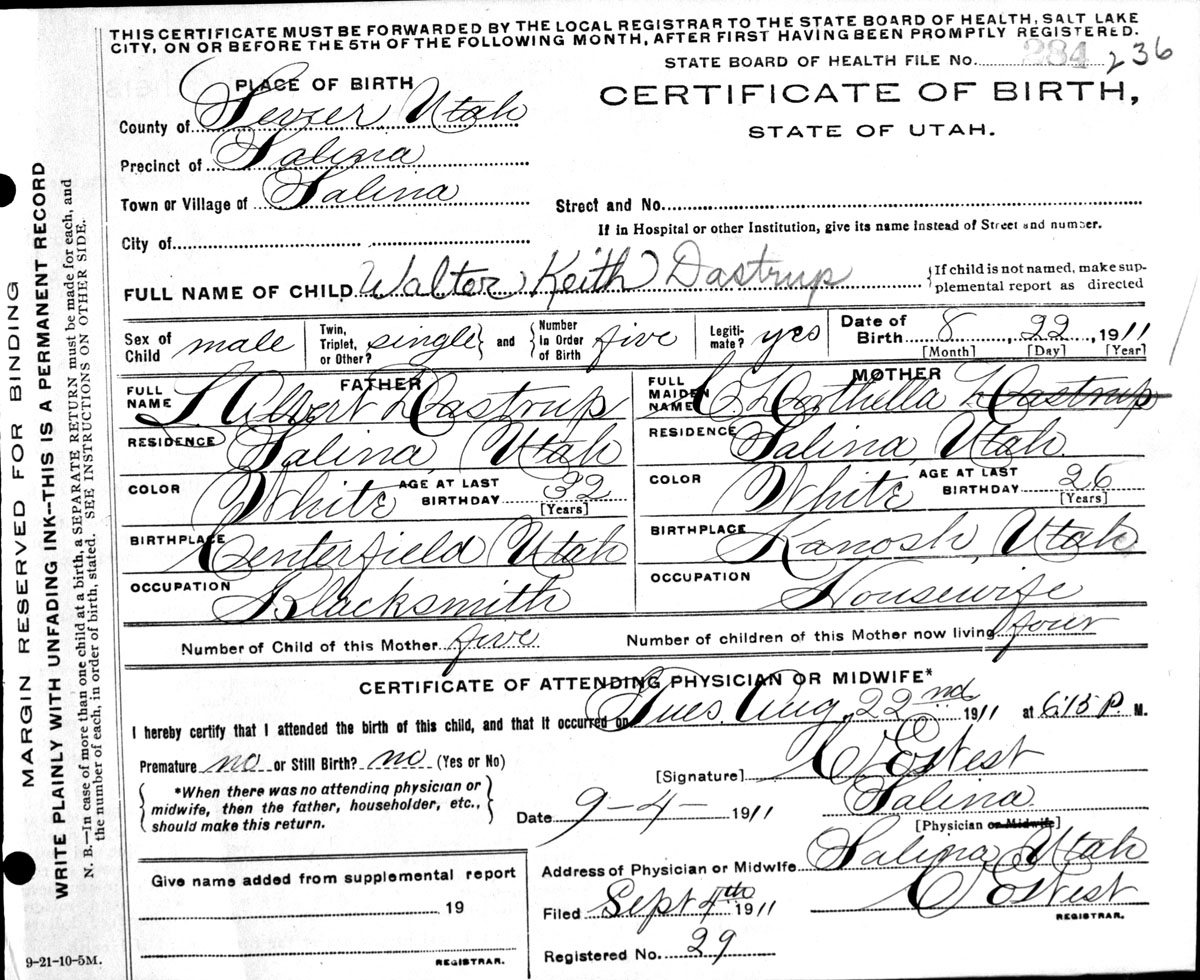 THIS CERTIFICATE MUST BE FORWARDED BY THE LOCAL REGISTRAR TO THE STATE BOARD OF HEALTH, SALT LAKE
CITY, ON OR BEFORE THE 5TH OF THE FOLLOWING MONTH, AFTER FIRST HAVING BEEN PROMPTLY REGISTERED.
STATE BOARD OF HEALTH FILE No. 284 236
PLACE OF BIRTH
CERTIFICATE OF BIRTH,
STATE OF UTAH.
County of Sevier, Utah
Precinct of Salina
Town or Village of Salina
Street and No.
If in Hospital or other Institution, give its name Instead of Street and number.
City of
FULL NAME OF CHILD Walter Keith Dastrup
If child is not named, make sup-
plemental report as directed
Sex of Child male Twin, Triplet, or Other? single and Number In Order of Birth five Legiti-mate? yes Date of Birth 8 22, 1911
[Month] [Day] [Year]
FATHER
FULL NAME S. Albert Dastrup
RESIDENCE Salina, Utah
COLOR White AGE AT LAST BIRTHDAY 32
[Years]
BIRTHPLACE Centerfield Utah
OCCUPATION Blacksmith
MOTHER
FULL MAIDEN NAME Dastrup
RESIDENCE Salina, Utah
COLOR White AGE AT LAST BIRTHDAY 26
[Years]
BIRTHPLACE Kanosh, Utah
OCCUPATION Housewife
Number of Child of this Mother five Number of children of this Mother now living four
CERTIFICATE OF ATTENDING PHYSICIAN OR MIDWIFE*
I hereby certify that I attended the birth of this child, and that it occurred on Tues. Aug. 22nd 1911 at 6:15 P. M.
Premature no or Still Birth? no (Yes or No)
*When there was no attending physician or
midwife, then the father, householder, etc.,
should make this return.
[Signature] C E West
Date 9-4- 1911 Salina
[Physician or Midwife]
Address of Physician or Midwife Salina Utah
Filed Sept 4th 1911 C E West
REGISTRAR.
Registered No. 29
Give name added from supplemental report
19
REGISTRAR.
MARGIN RESERVED FOR BINDING
WRITE PLAINLY WITH UNFADING INK--THIS IS A PERMANENT RECORD
N. B.—In case of more than one child at a birth, a SEPARATE RETURN must be made for each, and
the number of each, in order of birth, stated. SEE INSTRUCTIONS ON OTHER SIDE.
9-21-10-5M.